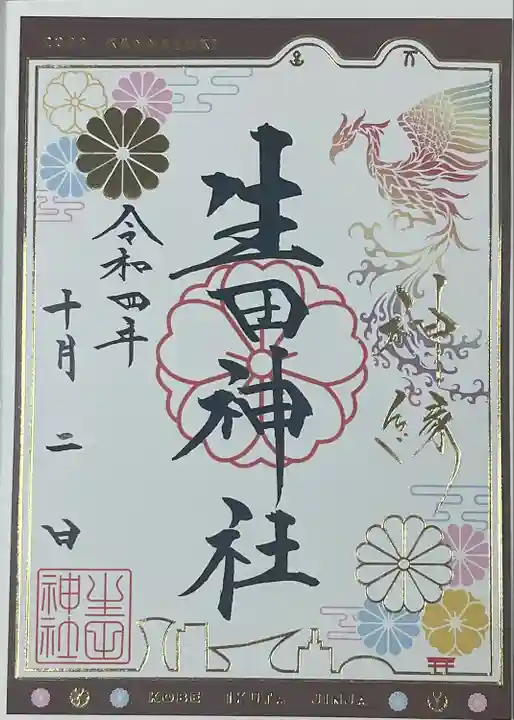 2022 KANNAZUKI
神縁
生田神社
令和四年
十月二日
生田神社
KOBE IKUTA JINJA